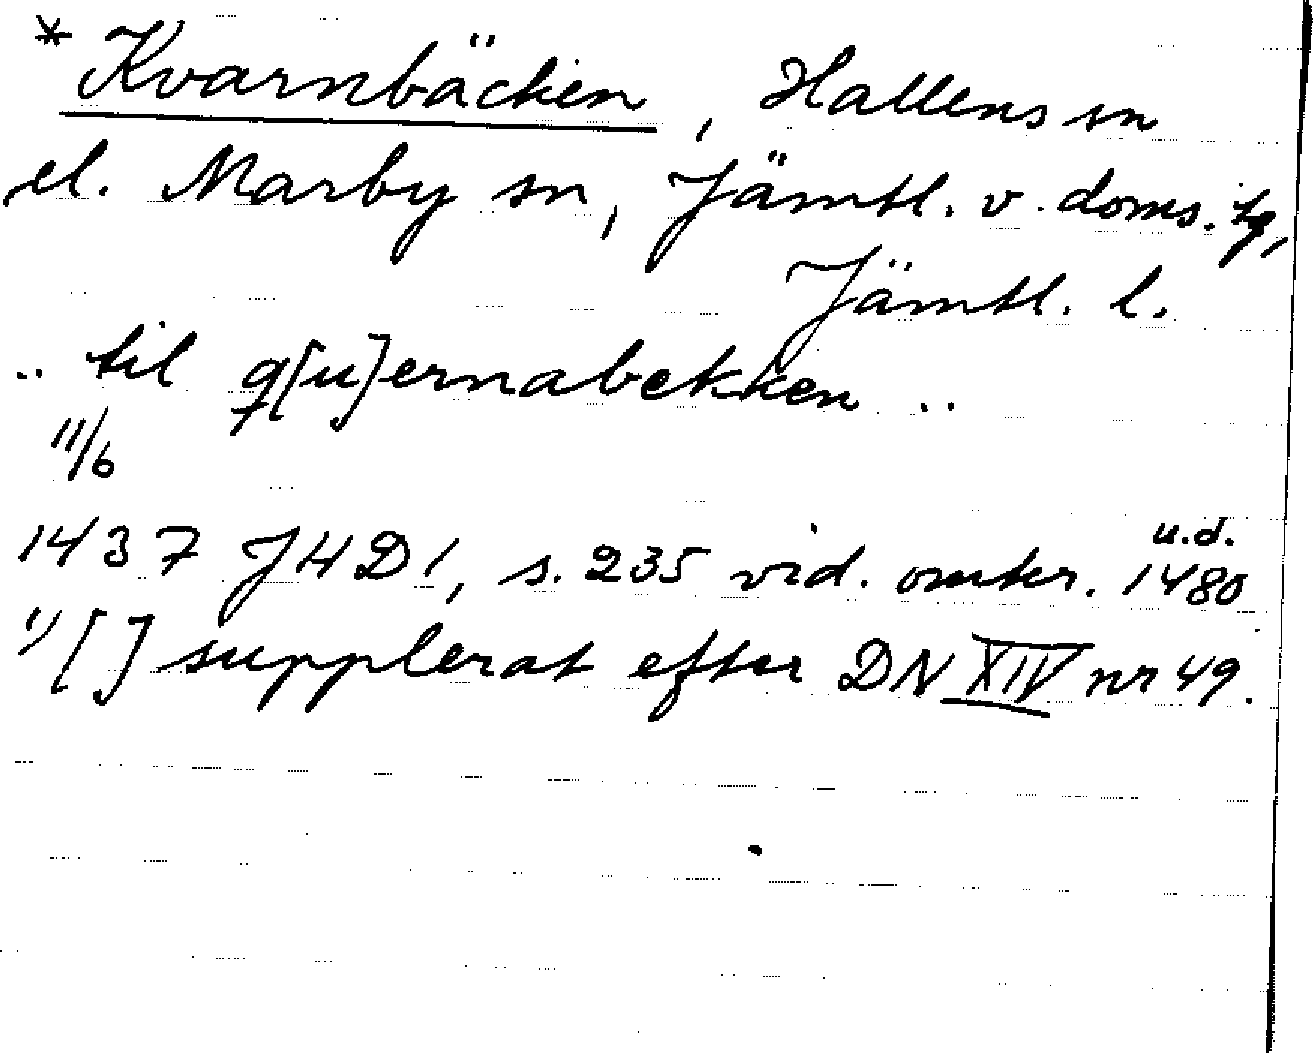 * Kvarnbäcken, Hallens sn
el. Marby sn, Jämtl. v. doms. tg,
Jämtl. l.
.. til q[u]ernabekken ..
11/6
1437 JHD 1, s. 235 vid. omkr. 1480 u.d.
1) [ ] supplerat efter DN XIV nr 49.